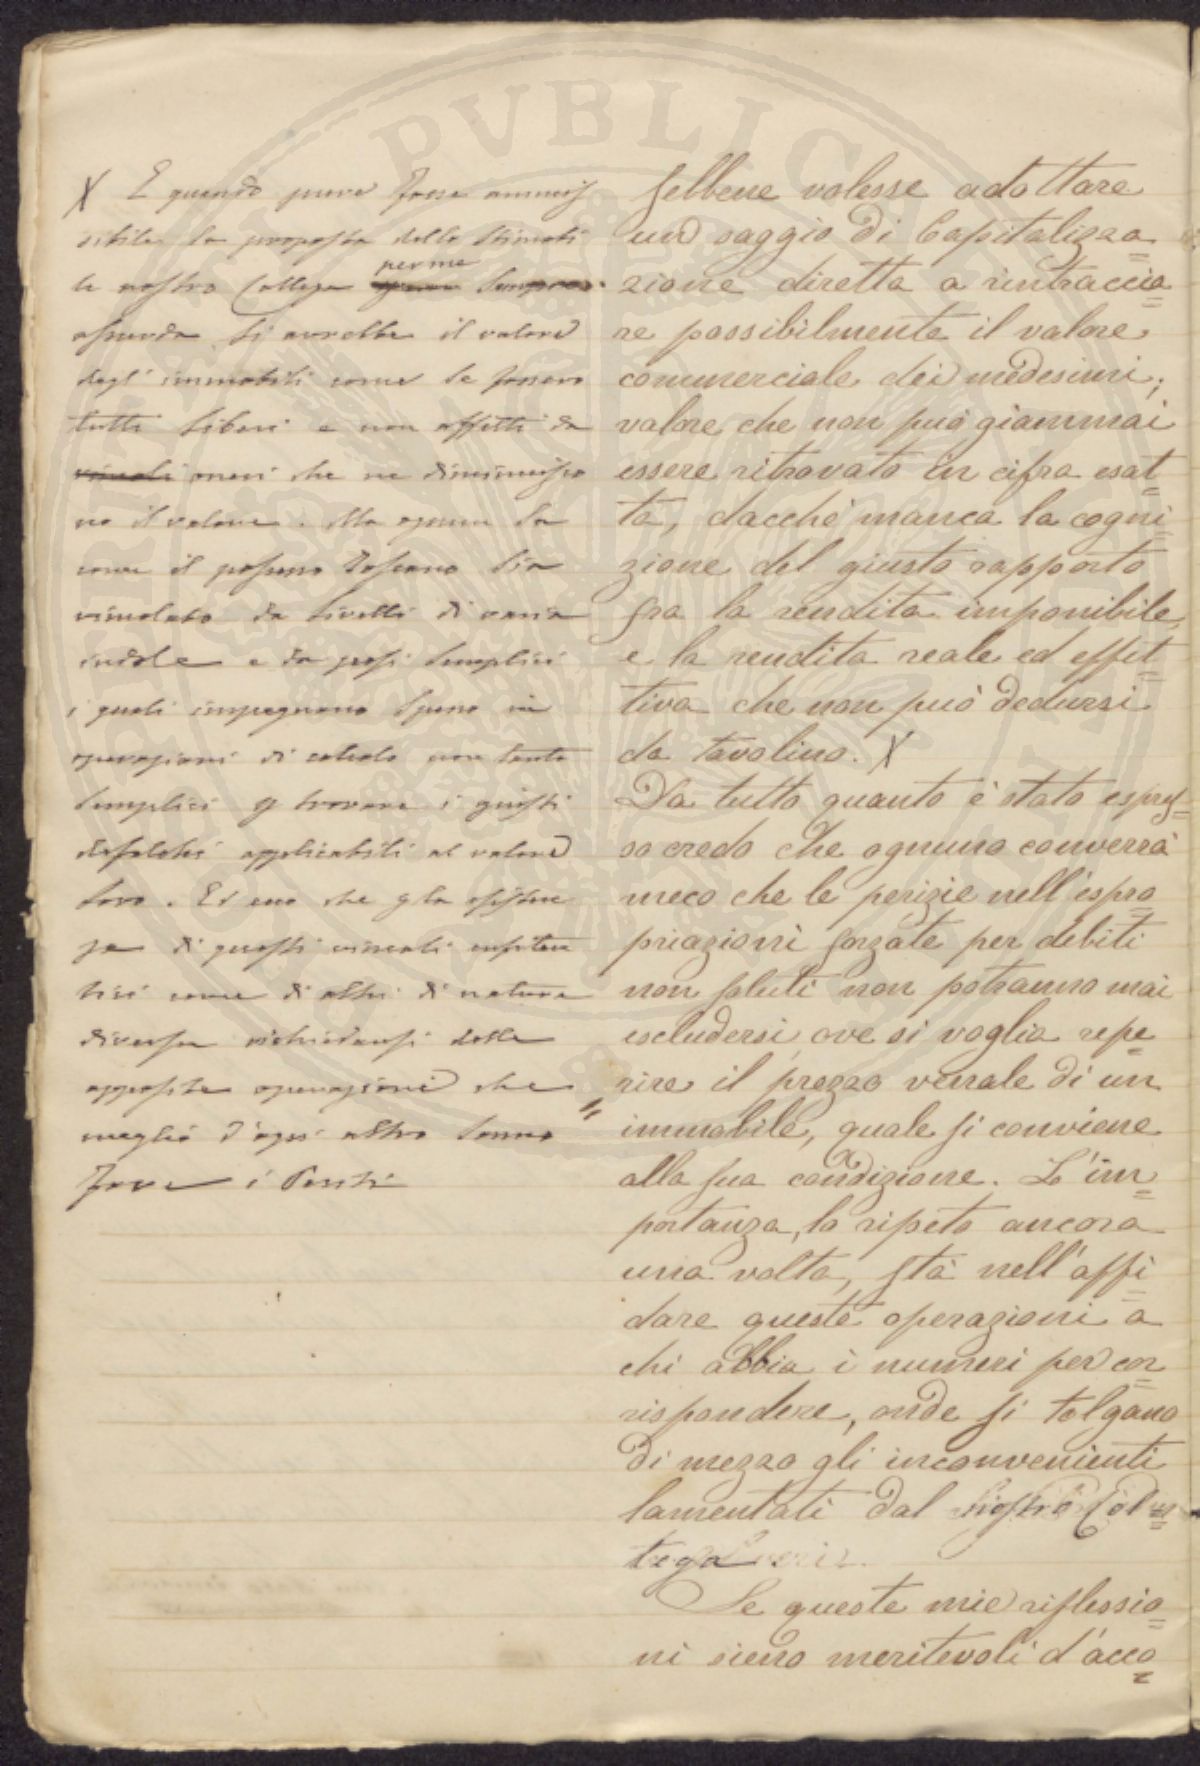 X E quando pure fosse ammis
sibile la proposta dello stimati
le nostro Collega per me sempre
assurda si avrebbe il valore
degl' immobili come se fossero
tutti liberi e non affetti da
vincoli oneri che ne diminuisco
no il valore. Ma ognun sa
come il possesso Toscano sia
vincolato da livelli di varia
indole e da pesi semplici
i quali impegnano spesso in
operazioni di calcolo non tanto
semplici p trovare i giusti
defalchi applicabili al valore
loro. Ed ecco che p la esisten
za di questi vincoli enfiteu
tici come di altri di natura
diversa richiedonsi delle
apposite operazioni che
meglio d'ogni altro sanno
fare i Periti
sebbene volesse adottare
un saggio di Capitalizza
zione diretta a rintraccia
re possibilmente il valore
commerciale dei medesimi;
valore che non può giammai
essere ritrovato in cifra esat
ta, dacchè manca la cogni
zione del giusto rapporto
fra la rendita imponibile,
e la rendita reale ed effet
tiva che non può dedursi
da tavolino. X
Da tutto quanto è stato espres
so credo che ognuno converrà
meco che le perizie nell'espro
priazioni forzate per debiti
non soluti non potranno mai
escludersi, ove si voglia repe
rire il prezzo venale di un
immobile, quale si conviene
alla sua condizione. L'im
portanza, lo ripeto ancora
una volta, stà nell'affi
dare queste operazioni a
chi abbia i numeri per cor
rispondere, onde si tolgano
di mezzo gli inconvenienti
lamentati dal nostro Col
lega
Se queste mie riflessio
ni sieno meritevoli d'acco